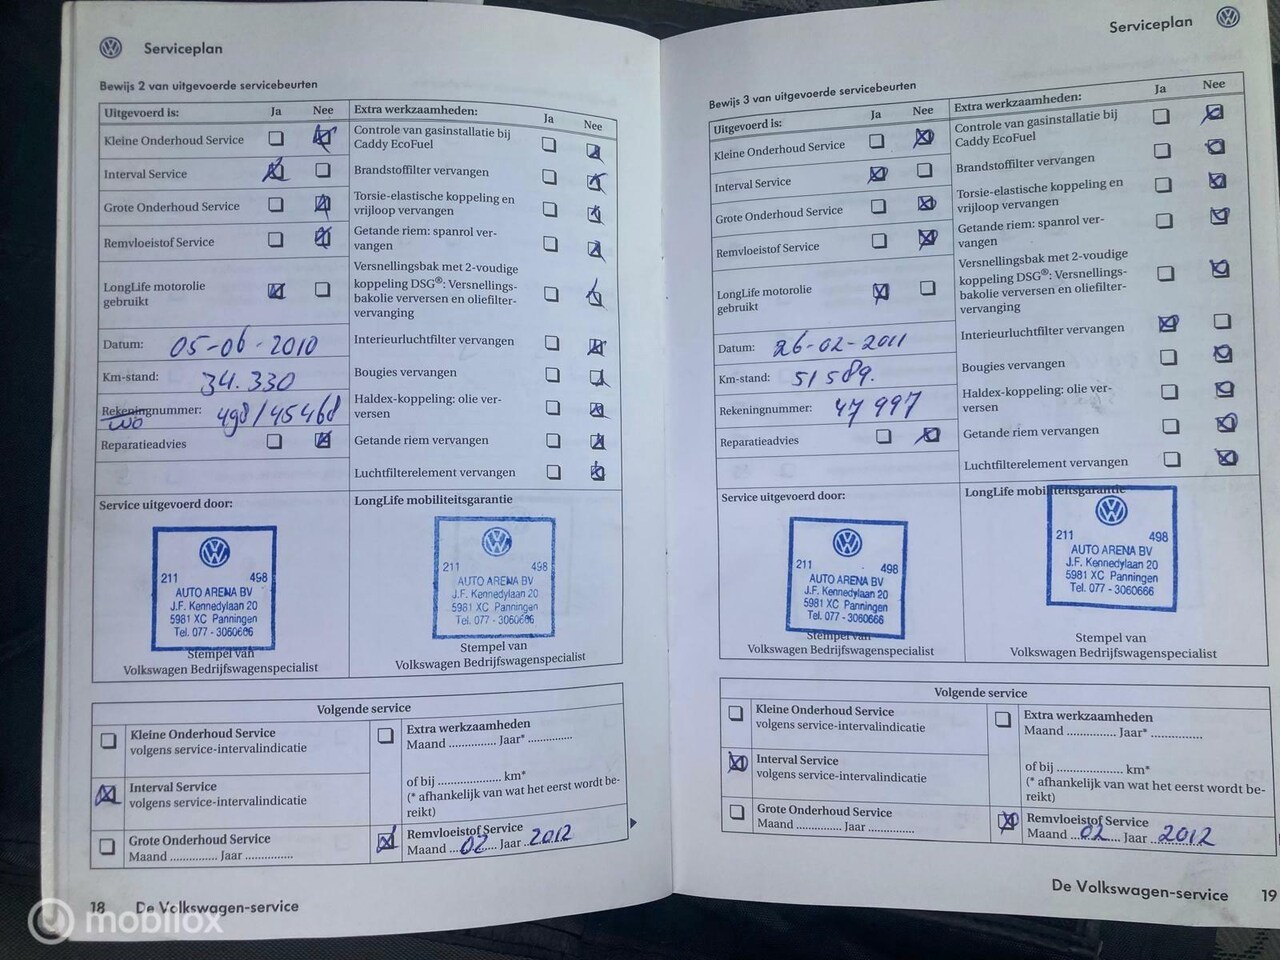 Serviceplan
Bewijs 2 van uitgevoerde servicebeurten
Uitgevoerd is: Ja Nee
Kleine Onderhoud Service
Interval Service
Grote Onderhoud Service
Remvloeistof Service
LongLife motorolie
gebruikt
Datum: 05-06-2010
Km-stand: 34.330
Rekeningnummer: 498/45468
WO
Reparatieadvies
Extra werkzaamheden: Ja Nee
Controle van gasinstallatie bij
Caddy EcoFuel
Brandstoffilter vervangen
Torsie-elastische koppeling en
vrijloop vervangen
Getande riem: spanrol ver-
vangen
Versnellingsbak met 2-voudige
koppeling DSG®: Versnellings-
bakolie verversen en oliefilter-
vervanging
Interieurluchtfilter vervangen
Bougies vervangen
Haldex-koppeling: olie ver-
versen
Getande riem vervangen
Luchtfilterelement vervangen
Service uitgevoerd door:
211 498
AUTO ARENA BV
J.F. Kennedylaan 20
5981 XC Panningen
Tel. 077 - 3060666
Stempel van
Volkswagen Bedrijfswagenspecialist
LongLife mobiliteitsgarantie
211 498
AUTO ARENA BV
J.F. Kennedylaan 20
5981 XC Panningen
Tel. 077 - 3060666
Stempel van
Volkswagen Bedrijfswagenspecialist
Volgende service
Kleine Onderhoud Service
volgens service-intervalindicatie
Interval Service
volgens service-intervalindicatie
Grote Onderhoud Service
Maand ............ Jaar ............
Extra werkzaamheden
Maand ............ Jaar* ............
of bij .................... km*
(* afhankelijk van wat het eerst wordt be-
reikt)
Remvloeistof Service
Maand ...02... Jaar 2012
18 De Volkswagen-service
Serviceplan
Bewijs 3 van uitgevoerde servicebeurten
Uitgevoerd is: Ja Nee
Kleine Onderhoud Service
Interval Service
Grote Onderhoud Service
Remvloeistof Service
LongLife motorolie
gebruikt
Datum: 26-02-2011
Km-stand: 51589.
Rekeningnummer: 47997
Reparatieadvies
Extra werkzaamheden: Ja Nee
Controle van gasinstallatie bij
Caddy EcoFuel
Brandstoffilter vervangen
Torsie-elastische koppeling en
vrijloop vervangen
Getande riem: spanrol ver-
vangen
Versnellingsbak met 2-voudige
koppeling DSG®: Versnellings-
bakolie verversen en oliefilter-
vervanging
Interieurluchtfilter vervangen
Bougies vervangen
Haldex-koppeling: olie ver-
versen
Getande riem vervangen
Luchtfilterelement vervangen
Service uitgevoerd door:
211 498
AUTO ARENA BV
J.F. Kennedylaan 20
5981 XC Panningen
Tel. 077 - 3060666
Stempel van
Volkswagen Bedrijfswagenspecialist
LongLife mobiliteitsgarantie
211 498
AUTO ARENA BV
J.F. Kennedylaan 20
5981 XC Panningen
Tel. 077 - 3060666
Stempel van
Volkswagen Bedrijfswagenspecialist
Volgende service
Kleine Onderhoud Service
volgens service-intervalindicatie
Interval Service
volgens service-intervalindicatie
Grote Onderhoud Service
Maand ............ Jaar ............
Extra werkzaamheden
Maand ............ Jaar* ............
of bij .................... km*
(* afhankelijk van wat het eerst wordt be-
reikt)
Remvloeistof Service
Maand ...02... Jaar 2012
De Volkswagen-service 19
mobilox